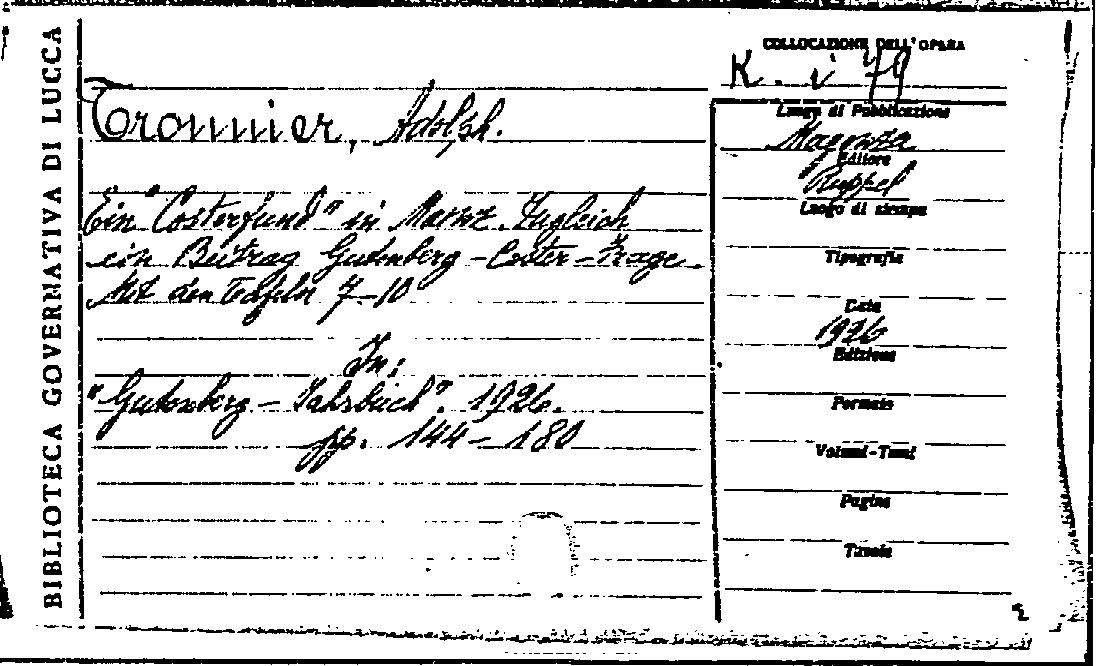 BIBLIOTECA GOVERNATIVA DI LUCCA
COLLOCAZIONE DELL'OPERA
K. i 79
Tronnier, Adolph.
Ein "Costerfund" in Mainz. Zugleich
ein Beitrag Gutenberg - Coster - Frage.
Mit den Tafeln 7-10
In:
"Gutenberg - Jahrbuch". 1926.
pp. 144 - 180
Luogo di Pubblicazione
Magonza
Editore
Ruppel
Luogo di stampa
Tipografia
Data
1926
Edizione
Formato
Volumi-Tomi
Pagine
Tavole